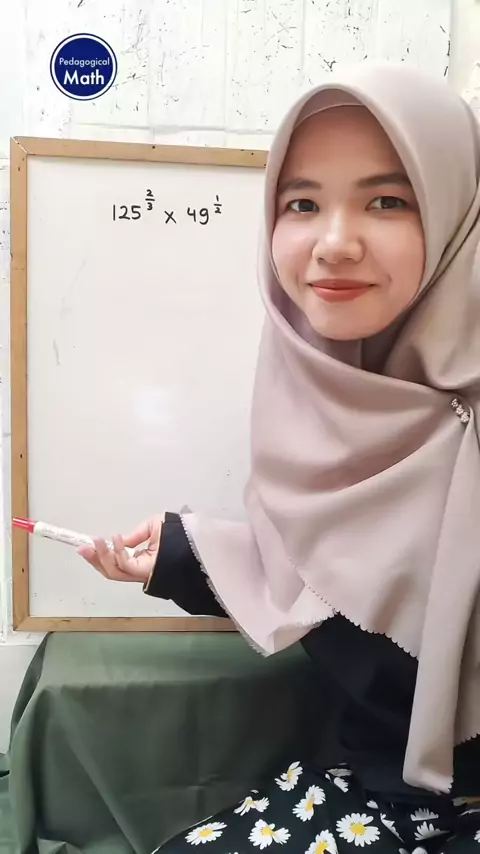 Pedagogical
Math
125^{2/3} x 49^{1/2}